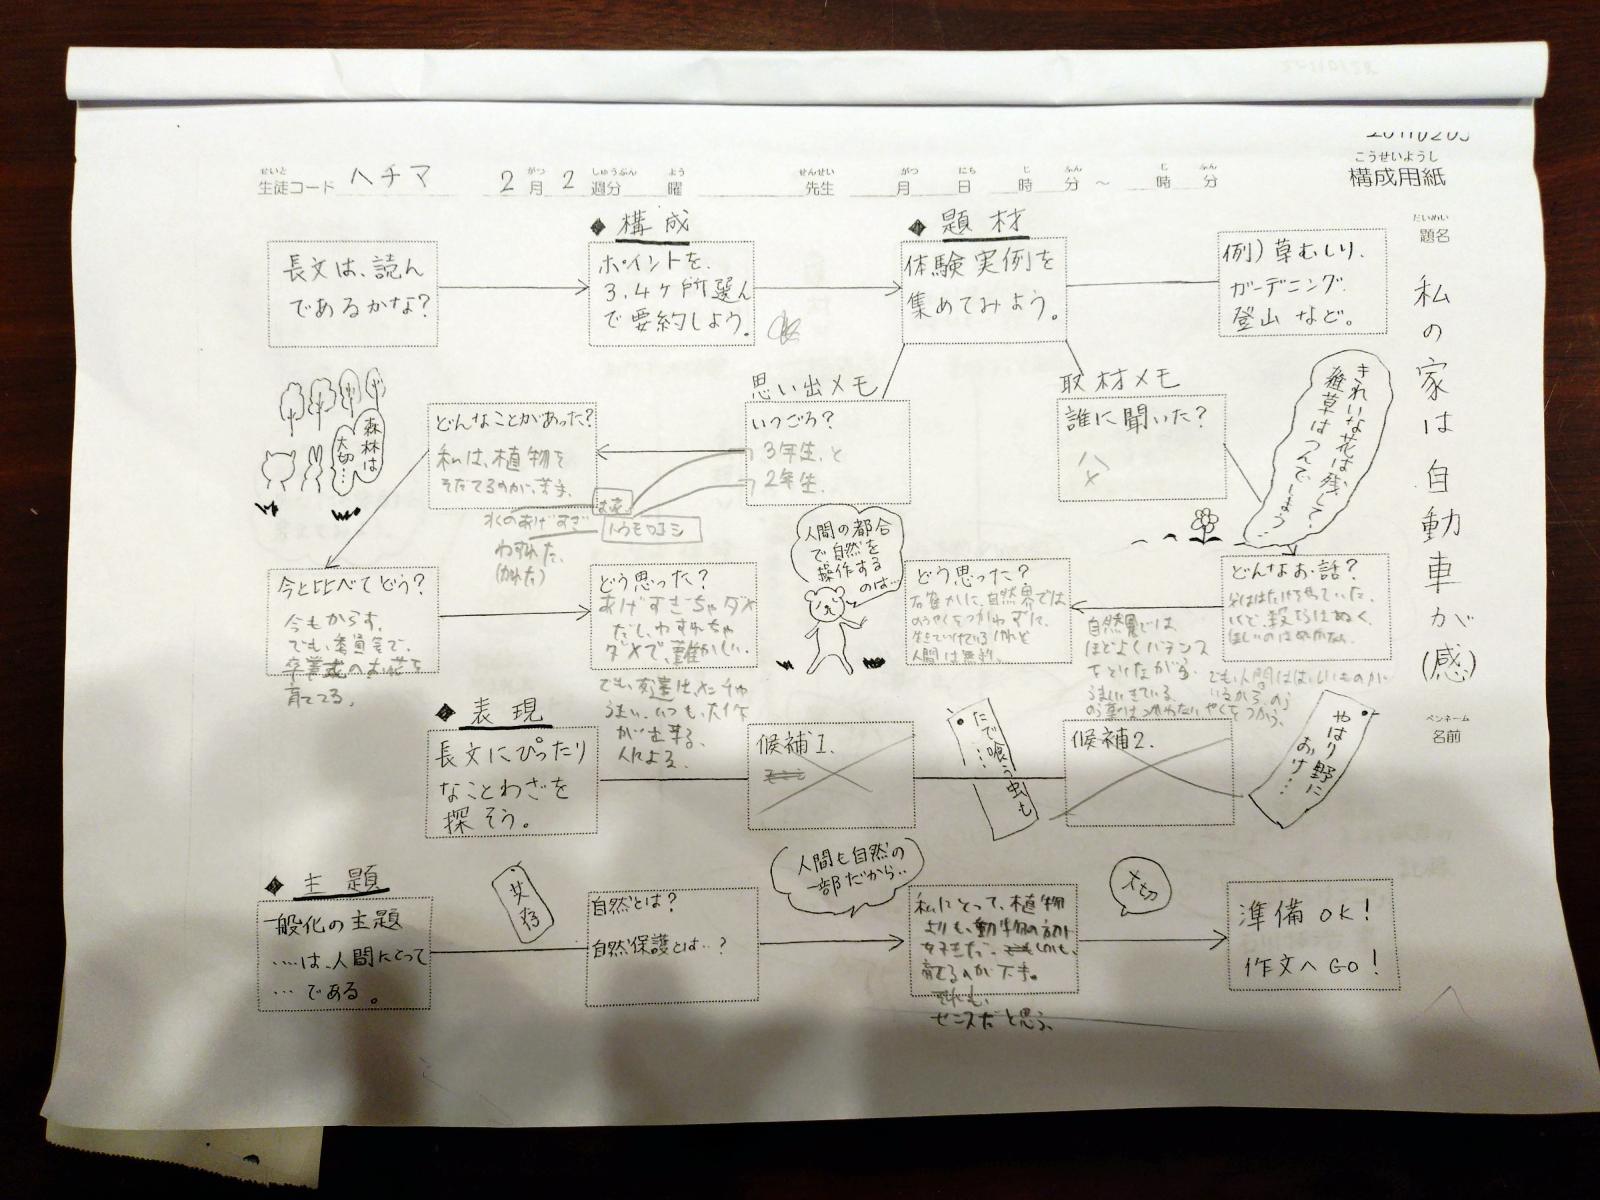 構成用紙
こうせいようし
せいと
生徒コード ハチマ 2月2週分 曜 先生 月 日 時 分~ 時 分
がつ しゅうぶん よう せんせい がつ にち じ ふん じ ふん
だいめい
題名
私の家は自動車が(感)
ペンネーム
名前
◆構成
◆題材
長文は、読ん
であるかな?
ポイントを、
3.4ヶ所選ん
で要約しよう。
体験実例を
集めてみよう。
例)草むしり、
ガーデニング、
登山など。
思い出メモ
いつごろ?
3年生と
2年生
取材メモ
誰に聞いた?
父
きれいな花は残して、
雑草はつんでしまう…
森林は
大切…
どんなことがあった?
私は、植物を
そだてるのが、苦手、
水のあげすぎ
わすれた、
(かれた)
トウモロコシ
今と比べてどう?
今もからす。
でも、委員会で、
卒業式のお花を
育ててる。
どう思った?
あげすぎちゃダメ
だし、わすれちゃ
ダメで、難かしい。
でも、友達は、メッチャ
うまい。いつも、大作
が出来る、
人による。
人間の都合
で自然を
操作する
のは…
どう思った?
確かに、自然界では
のうやくをつかわずに、
生きていけている
人間は無理。
どんなお話?
自然界では、
ほどよくバランス
をとりながら、
うまくいきている
でも、人間はほしいものが
いるから、のう
やくをつかう。
◆表現
長文にぴったり
なことわざを
探そう。
候補1.
たで喰う虫も
…
候補2.
やはり野に
おけ…
◆主題
一般化の主題
…は、人間にとって
…である。
共存
自然とは?
自然保護とは…?
人間も自然の
一部だから…
私にとって、植物
よりも、動物の方が
好きだ。
育てるのが下手。
それも、
センスだと思う。
大切
準備OK!
作文へGO!